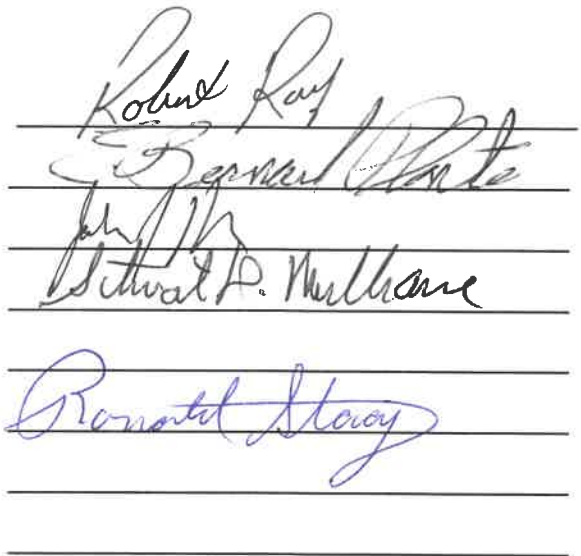 Robert Ray
Bernard Plante
John
D. Mullhane
Ronald Stacy